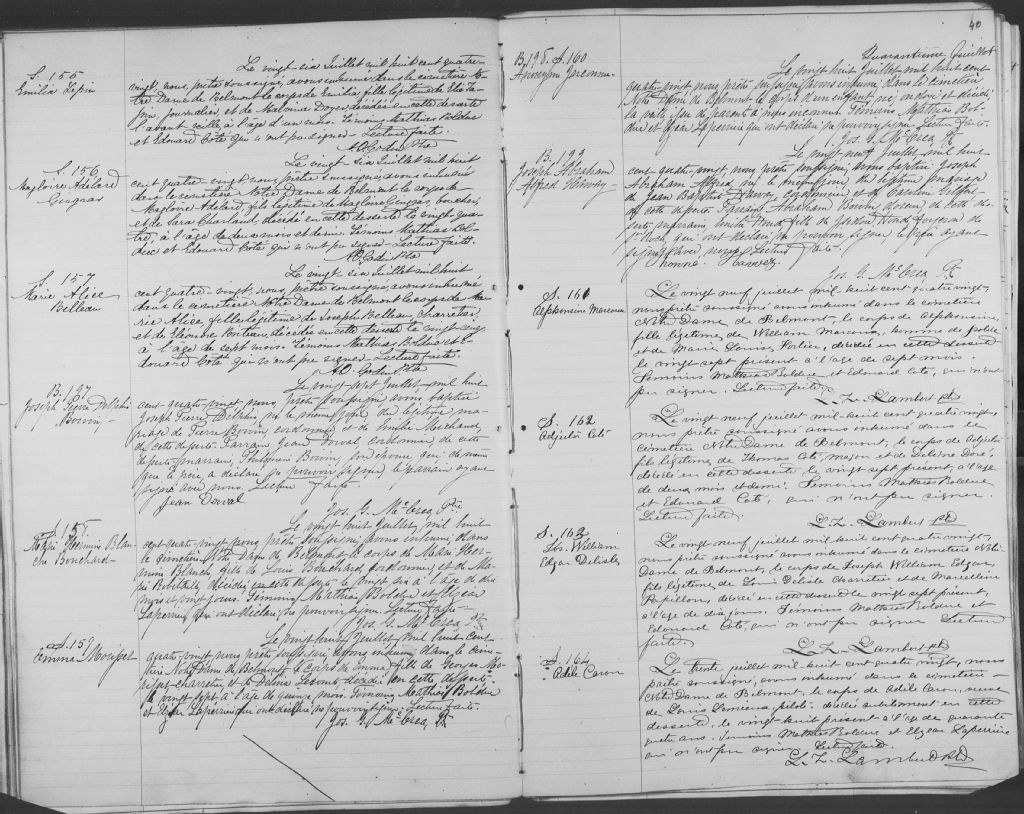 S. 155
Emilia Pépin
Le vingt six Juillet mil huit cent quatre-
vingt, nous, prêtre soussigné, avons inhumé dans le cimetière No-
tre Dame de Belmont le corps de Emilia, fille légitime de
journalier, et de Malvina Doyer décédée en cette desserte
l'avant veille, à l'âge d'un mois. Témoins Mathias Bolduc
et Edouard Côté qui n'ont pu signer. Lecture faite.
S. 156
Magloire Adélard
Gingras
Le vingt six Juillet mil huit
cent quatre-vingt, nous prêtre soussigné, avons inhumé
dans le cimetière Notre Dame de Belmont le corps de
Magloire Adélard fils légitime de Magloire Gingras, boucher,
et de Sara Charland, décédé en cette desserte le vingt qua-
tre, à l'âge de deux mois et demi. Témoins Mathias Bol-
duc et Edouard Côté qui n'ont pu signer. Lecture faite.
S. 157
Marie Alice
Belleau
Le vingt six Juillet mil huit
cent quatre-vingt, nous, prêtre soussigné, avons inhumé
dans le cimetière Notre Dame de Belmont le corps de Ma-
rie Alice, fille légitime de Joseph Belleau, charretier,
et de Eléonore décédée en cette desserte le vingt cinq
à l'âge de sept mois. Témoins Mathias Bolduc et E-
douard Coté qui n'ont pu signer. Lecture faite.
B. 197
Joseph Pierre Delphis
Boivin
Le vingt sept Juillet mil huit
cent quatre-vingt nous, prêtre soussigné avons baptisé
Joseph Pierre Delphis, né le même jour du légitime ma-
riage de Pierre Boivin cordonnier et de Emilie Marchand,
de cette desserte. Parrain Jean Dorval cordonnier de cette
desserte, marraine, Boivin, qui de même
que le père, a déclaré ne pouvoir signer, le parrain ayant
signé avec nous. Lecture faite.
Jean Dorval
Jos. G. McCrea Ptr.
S. 158
Marie Hermine Blan-
che Bouchard
Le vingt huit Juillet, mil huit
cent quatre-vingt nous, prêtre soussigné, avons inhumé dans
le cimetière Notre Dame de Belmont le corps de Marie Her-
mine Blanche, fille de Louis Bouchard, cordonnier et de Ma-
rie Robitaille décédée en cette desserte, le vingt six à l'âge de dix
mois et vingt jours. Témoins, Mathias Bolduc et Elzear
Laperrière qui ont déclaré ne pouvoir signer. Lecture faite.
Jos. G. McCrea Ptr.
S. 159
Emma Morisset
Le vingt huit Juillet, mil huit cent
quatre-vingt, nous prêtre soussigné, avons inhumé, dans le cime-
tière Notre Dame de Belmont, le corps de Emma, fille de Georges Mo-
risset charretier et de décédée en cette desserte
le vingt sept à l'âge de quinze mois. Témoins Mathias Bolduc
et Elzéar Laperrière qui ont déclaré ne pouvoir signer. Lecture faite.
Jos. G. McCrea, Ptr.
40
Quarantième feuillet
B. 198. S. 160
Anonyme Inconnu
Le vingt huit Juillet, mil huit cent
quatre-vingt nous prêtre soussigné, avons inhumé, dans le cimetière
Notre Dame de Belmont le corps d'un enfant, né, ondoyé et décédé,
de parents à nous inconnus. Témoins Mathias Bol-
duc et Elzear Laperrière qui ont déclaré ne pouvoir signer. Lecture faite.
Jos. G. McCrea Ptr.
B. 199
Joseph Abraham
Alfred
Le vingt neuf Juillet, mil huit
cent quatre-vingt nous, prêtre soussigné, avons baptisé Joseph
Abraham Alfred né le même jour du légitime mariage
de Jean Baptiste cordonnier et de Caroline
de cette desserte. Parrain, Abraham Boivin de cette des-
serte marraine,
St. Roch, qui ont déclaré ne pouvoir signer, le père ayant
signé avec nous. Lecture faite.
Jos. G. McCrea Ptr.
S. 161
Alphonsine Marcoux
Le vingt neuf juillet mil-huit cent quatre vingt,
nous prêtre soussigné avons inhumé dans le cimetière
Notre Dame de Belmont, le corps de Alphonsine,
fille légitime de William Marcoux, homme de police
et de Marie Louise Fortier, décédée en cette desserte
le vingt sept présent à l'âge de sept mois.
Témoins Mathias Bolduc et Edouard Coté, qui n'ont
pu signer. Lecture faite.
L. Z. Lambert ptr
S. 162
Adjutor Coté
Le vingt neuf juillet mil-huit cent quatre vingt,
nous prêtre soussigné avons inhumé dans le
cimetière Notre Dame de Belmont, le corps de Adjutor
fils légitime de Thomas Coté, maçon et de Delvina Doré,
décédé en cette desserte le vingt sept présent, à l'âge
de deux mois et demi. Témoins Mathias Bolduc
et Edouard Coté, qui n'ont pu signer.
Lecture faite.
L. Z. Lambert ptr
S. 163
Jos. William
Edgar Delisle
Le vingt neuf juillet mil-huit cent quatre vingt,
nous prêtre soussigné avons inhumé dans le cimetière Notre
Dame de Belmont, le corps de Joseph William Edgar,
fils légitime de Louis Delisle Charretier et de Marcelline
Papillon, décédé en cette desserte le vingt sept présent,
à l'âge de dix jours. Témoins Mathias Bolduc et
Edouard Coté, qui n'ont pu signer Lecture
faite.
L. Z. Lambert ptr
S. 164
Adèle Caron
Le trente juillet mil-huit cent quatre vingt, nous
prêtre soussigné, avons inhumé dans le cimetière
Notre Dame de Belmont, le corps de Adèle Caron, veuve
de Louis Lamieux, pilote, décédée subitement en cette
desserte, le vingt huit présent à l'âge de quarante
quatre ans. Témoins Mathias Bolduc et Elzear Laperrière
qui n'ont pu signer Lecture faite.
L. Z. Lambert Ptr